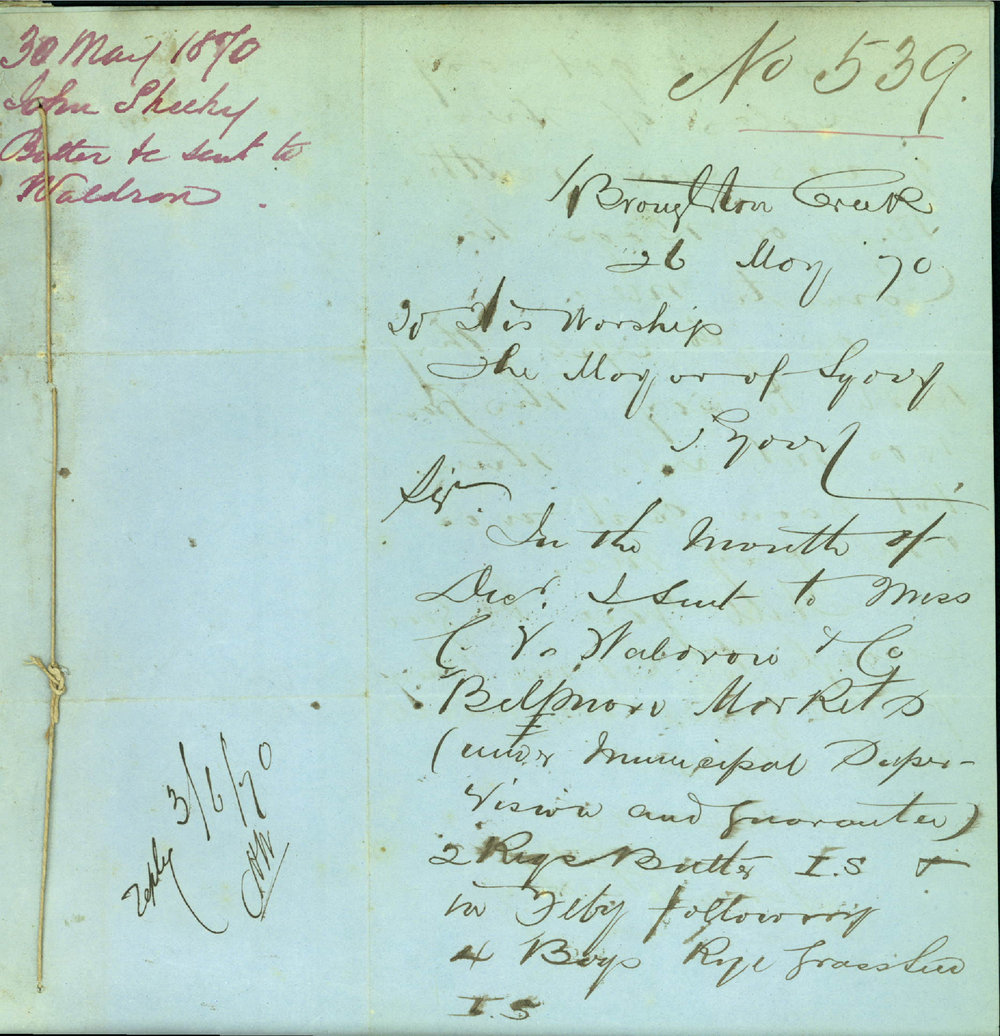 30 May 1870
John Sheehy
Butter &c sent to
Waldron
No 539.
Broughton Creek
26 May 70
To His Worship
The Mayor of Sydney
Sydney
Sir
In the Month of
Decr. I sent to Mess
C V. Waldron & Co
Belmore Markets
(under Municipal Super-
vision and Guarantee)
2 Kegs Butter I.S &
in Feby following
4 Bags Rye Grass Seed
I.S
reply 3/6/70